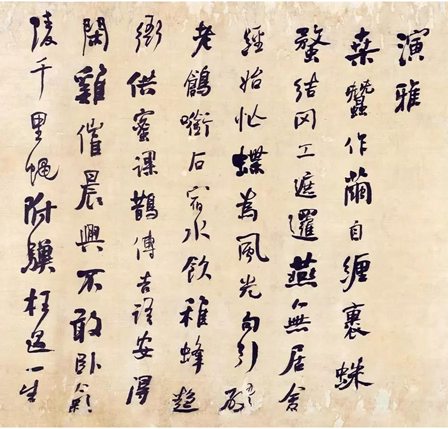 演雅
桑蠶作繭自纏裹蛛
蝥結网工遮邏燕無居舍
經始忙蝶為風光勾引破
老鶬銜石宿水飲稚蜂趨
衙供蜜課鵲傳吉語安得
閑雞催晨興不敢臥氣
陵千里蠅附驥枉過一生